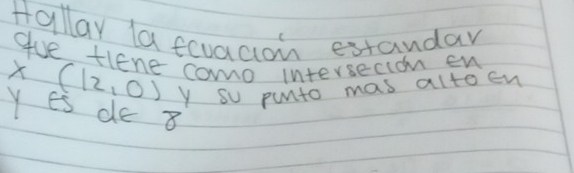 Hallar la ecuación estandar
que tiene como intersección en
x (12,0) y su punto mas alto en
y es de 8